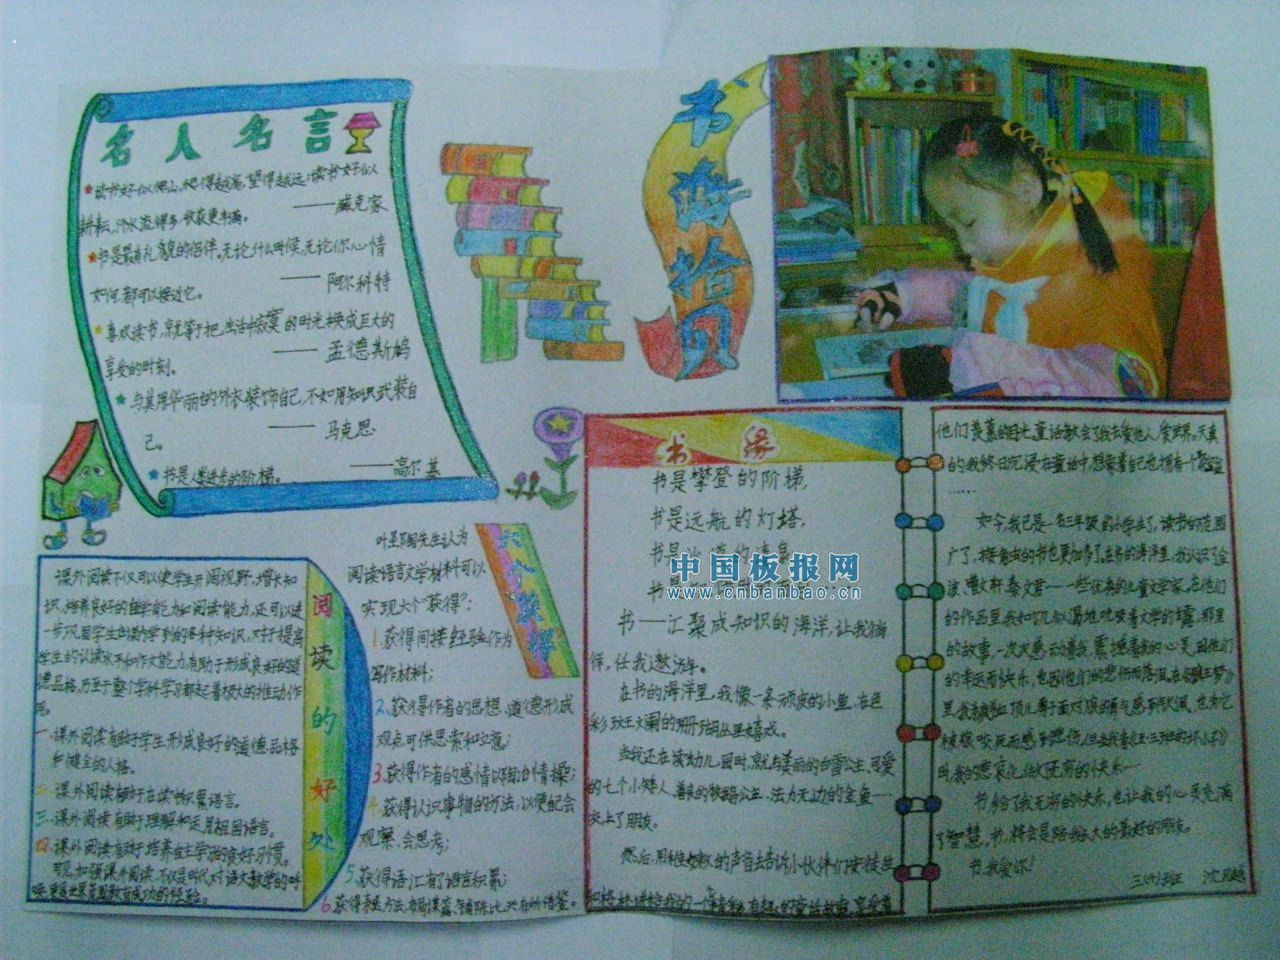 名人名言
读书好似爬山，爬得越高，望得越远；读书好似
耕耘，汗水流得多，收获更丰满。
——臧克家
书是最有礼貌的侣伴，无论什么时候，无论你心情
如何，都可以接近它。
——阿尔科特
喜欢读书，就等于把生活中寂寞的时光换成巨大的
享受的时刻。
——孟德斯鸠
与其用华丽的外衣装饰自己，不如用知识武装自
己。
——马克思
书是人类进步的阶梯。
——高尔基
书海拾贝
阅读的好处
课外阅读不仅可以使学生开阔视野，增长知
识，培养良好的自学能力和阅读能力，还可以进
一步巩固学生在课内学到的各种知识，对于提高
学生的认读水平和作文能力，有助于形成良好的道
德品格，乃至于整个学科学习都起着极大的推动作
用。
一、课外阅读有助于学生形成良好的道德品格
和健全的人格。
二、课外阅读有助于在读中积累语言。
三、课外阅读有助于理解和运用祖国语言。
四、课外阅读有助于培养自主学习的良好习惯。
叶圣陶先生认为
阅读语言文学材料可以
实现六个“获得”：
1.获得间接经验作为
写作材料；
2.获得作者的思想、道德形成
观点可供思索和立意；
3.获得作者的感情以陶冶情操；
4.获得认识事物的方法，以便配会
观察、会思考；
5.获得语汇有了语言积累；
书缘
书是攀登的阶梯，
书是远航的灯塔，
书是
书是
书——汇聚成知识的海洋，让我徜
徉，任我遨游。
在书的海洋里，我像一条顽皮的小鱼，在色
彩斑斓的珊瑚丛里嬉戏。
当我还在读幼儿园时，就与美丽的白雪公主、可爱
的七个小矮人、善良的牧鹅公主、法力无边的宝鱼……
交上了朋友。
他们羡慕的目光。童话教会了我去爱他人，爱世界。天真
的我终日沉浸在童话中，想象着自己也拥有一个
……
如今，我已是一名三年级的小学生了，读书的范围
广了，接触的书也更加多了。在书的海洋里，我认识了金
波、曹文轩、秦文君……一些优秀的儿童文学家。在他们
的故事，一次次感动着我，震撼着我的心灵。因他们
的幸运而快乐，也因他们的悲伤而落泪。
书给了我无穷的快乐，也让我的心灵充满
了智慧。书，将会是陪我长大的最好的朋友。
书，我爱你！
中国板报网
www.cnbanbao.cn